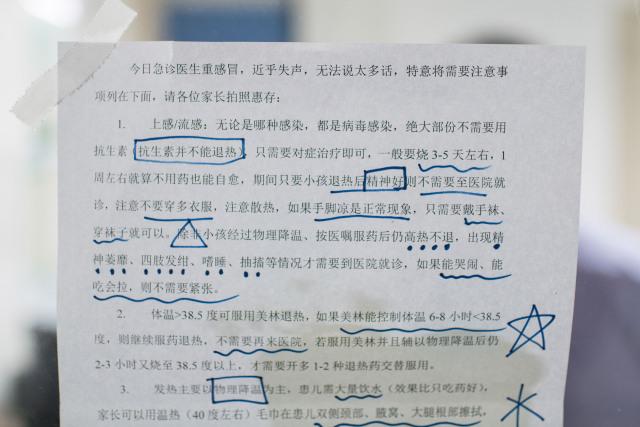 今日急诊医生重感冒，近乎失声，无法说太多话，特意将需要注意事
项列在下面，请各位家长拍照惠存：
1. 上感/流感：无论是哪种感染，都是病毒感染，绝大部份不需要用
抗生素（抗生素并不能退热），只需要对症治疗即可，一般要烧 3-5 天左右，1
周左右就算不用药也能自愈，期间只要小孩退热后精神好则不需要至医院就
诊，注意不要穿多衣服，注意散热，如果手脚凉是正常现象，只需要戴手袜、
穿袜子就可以。除非小孩经过物理降温、按医嘱服药后仍高热不退，出现精
神萎靡、四肢发绀、嗜睡、抽搐等情况才需要到医院就诊，如果能哭闹、能
吃会拉，则不需要紧张。
2. 体温>38.5 度可服用美林退热，如果美林能控制体温 6-8 小时<38.5
度，则继续服药退热，不需要再来医院，若服用美林并且辅以物理降温后仍
2-3 小时又烧至 38.5 度以上，才需要开多 1-2 种退热药交替服用。
3. 发热主要以物理降温为主，患儿需大量饮水（效果比只吃药好），
家长可以用温热（40 度左右）毛巾在患儿双侧颈部、腋窝、大腿根部擦拭，